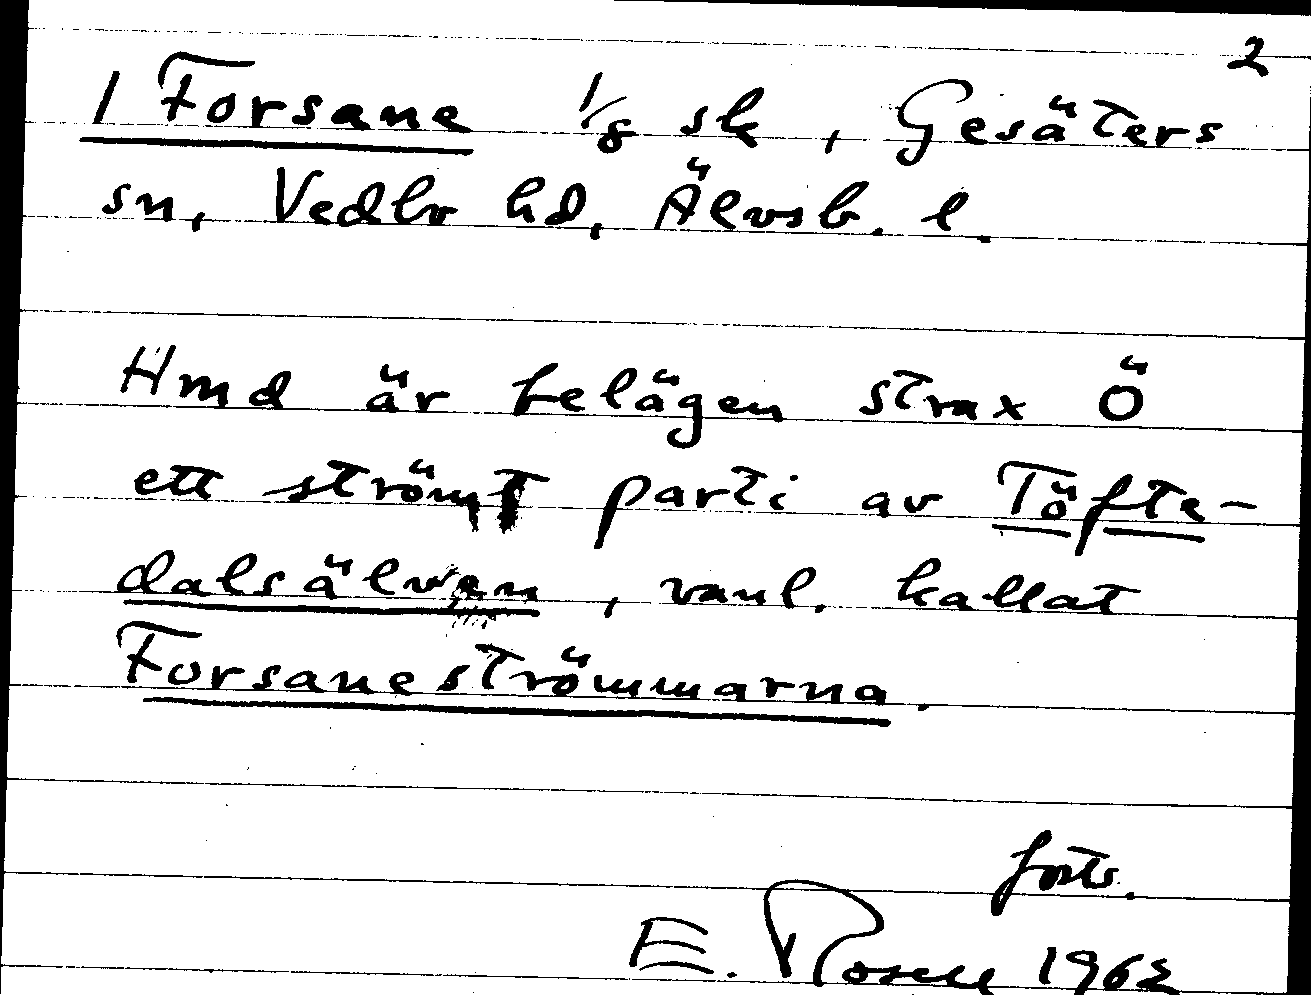 2
1 Forsane 1/8 sk, Gesäters
sn, Vedbo hd, Älvsb. l.
Hmd är belägen strax Ö
ett strömt parti av Töfte-
dalsälven, vanl. kallat
Forsaneströmmarna.
forts.
E. Rosell 1962